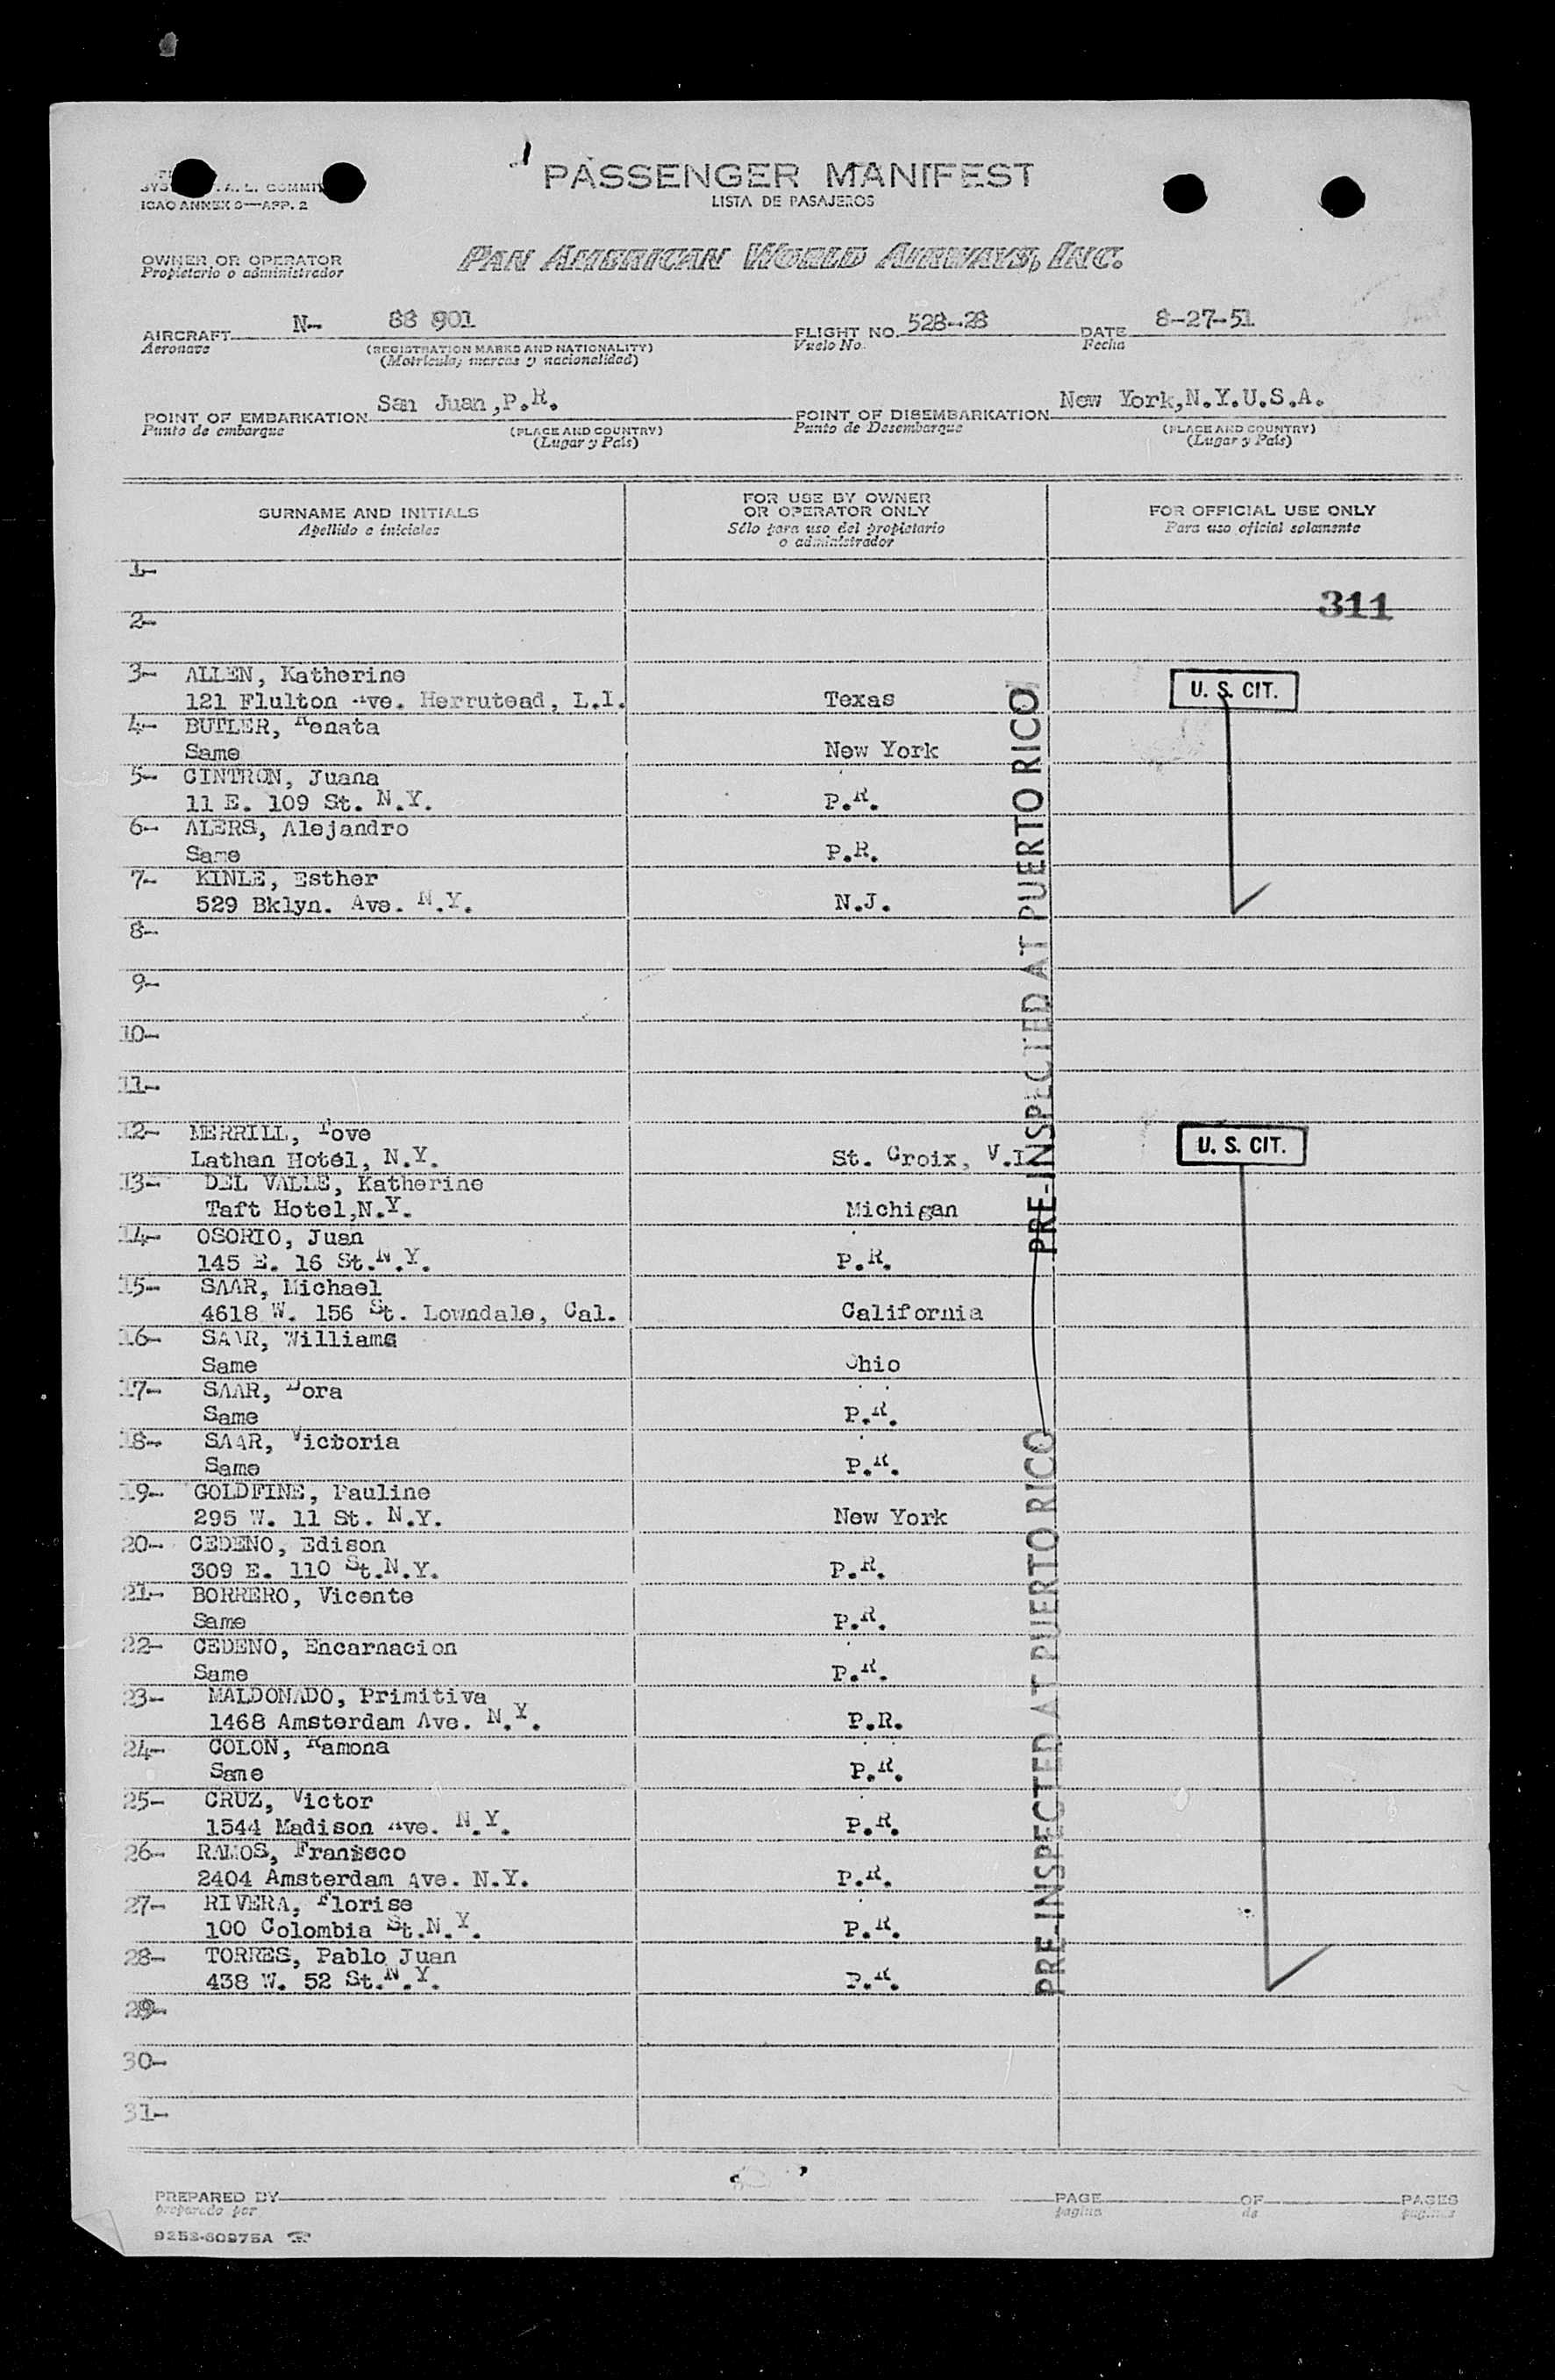 PASSENGER MANIFEST
LISTA DE PASAJEROS
A. L. COMMIT
ICAO ANNEX 9—APP. 2
OWNER OR OPERATOR
Propietario o administrador
PAN AMERICAN WORLD AIRWAYS, INC.
AIRCRAFT N- 88 901 FLIGHT NO. 528-28 DATE 8-27-51
Aeronave (REGISTRATION MARKS AND NATIONALITY) Vuelo No. Fecha
(Matricula, marcas y nacionalidad)
POINT OF EMBARKATION San Juan,P.R. POINT OF DISEMBARKATION New York,N.Y.U.S.A.
Punto de embarque (PLACE AND COUNTRY) Punto de Desembarque (PLACE AND COUNTRY)
(Lugar y País) (Lugar y País)
SURNAME AND INITIALS FOR USE BY OWNER OR OPERATOR ONLY FOR OFFICIAL USE ONLY
Apellido e iniciales Sólo para uso del propietario o administrador Para uso oficial solamente
1-
311
2-
3- ALLEN, Katherine
121 Flulton Ave. Herrutead, L.I. Texas U. S. CIT.
4- BUTLER, Renata
Same New York
5- CINTRON, Juana
11 E. 109 St. N.Y. P.R.
6- ALERS, Alejandro
Same P.R.
7- KINLE, Esther
529 Bklyn. Ave. N.Y. N.J.
8-
9-
10-
11-
PRE-INSPECTED AT PUERTO RICO
12- MERRILL, Tove
Lathan Hotel, N.Y. St. Croix, V.I U. S. CIT.
13- DEL VALLE, Katherine
Taft Hotel,N.Y. Michigan
14- OSORIO, Juan
145 E. 16 St.N.Y. P.R.
15- SAAR, Michael
4618 W. 156 St. Lowndale, Cal. California
16- SAAR, Williams
Same Ohio
17- SAAR, Dora
Same P.R.
18- SAAR, Victoria
Same P.R.
19- GOLDFINE, Pauline
295 W. 11 St. N.Y. New York
20- CEDENO, Edison
309 E. 110 St.N.Y. P.R.
21- BORRERO, Vicente
Same P.R.
22- CEDENO, Encarnacion
Same P.R.
23- MALDONADO, Primitiva
1468 Amsterdam Ave. N.Y. P.R.
24- COLON, Ramona
Same P.R.
25- CRUZ, Victor
1544 Madison Ave. N.Y. P.R.
26- RAMOS, Fransco
2404 Amsterdam Ave. N.Y. P.R.
27- RIVERA, Florise
100 Colombia St.N.Y. P.R.
28- TORRES, Pablo Juan
438 W. 52 St.N.Y. P.R.
PRE-INSPECTED AT PUERTO RICO
29-
30-
31-
PREPARED BY PAGE OF PAGES
preparado por pagina de paginas
9252-60975A